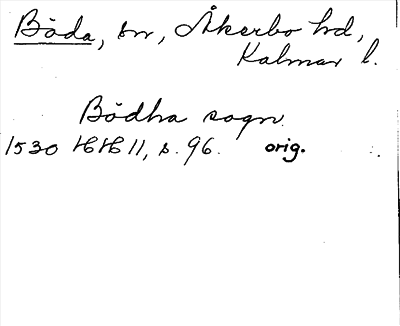 Böda, sn, Åkerbo hd,
Kalmar l.
Bödha sogn.
1530 HH 11, s. 96. orig.